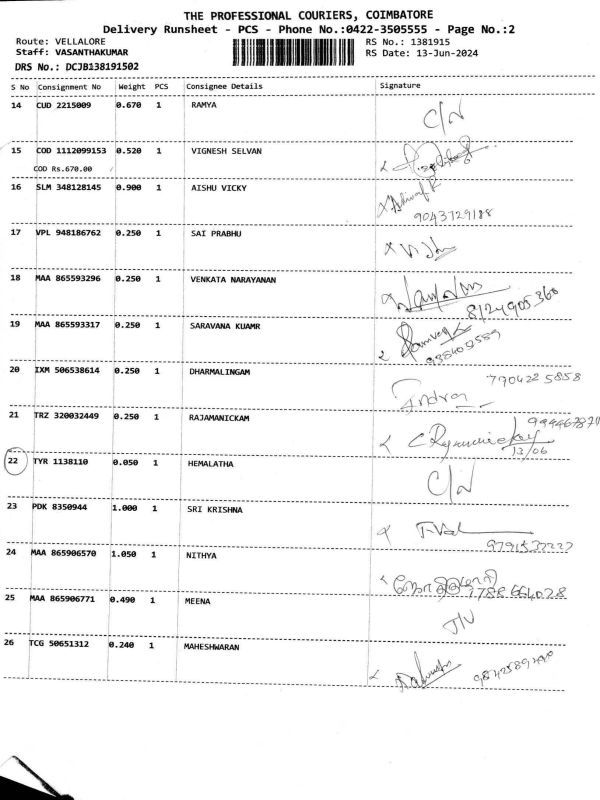 THE PROFESSIONAL COURIERS, COIMBATORE
Delivery Runsheet - PCS - Phone No.:0422-3505555 - Page No.:2
Route: VELLALORE RS No.: 1381915
Staff: VASANTHAKUMAR RS Date: 13-Jun-2024
DRS No.: DCJB138191502
S No Consignment No Weight PCS Consignee Details Signature
14 CUD 2215009 0.670 1 RAMYA C/N
15 COD 1112099153 0.520 1 VIGNESH SELVAN
COD Rs.670.00
16 SLM 348128145 0.900 1 AISHU VICKY
9043729188
17 VPL 948186762 0.250 1 SAI PRABHU
18 MAA 865593296 0.250 1 VENKATA NARAYANAN
8124905368
19 MAA 865593317 0.250 1 SARAVANA KUAMR
20 IXM 506538614 0.250 1 DHARMALINGAM 790422 5858
Indra
21 TRZ 320032449 0.250 1 RAJAMANICKAM
13/06
22 TYR 1138110 0.050 1 HEMALATHA C/N
23 PDK 8350944 1.000 1 SRI KRISHNA
24 MAA 865906570 1.050 1 NITHYA
25 MAA 865906771 0.490 1 MEENA
26 TCG 50651312 0.240 1 MAHESHWARAN